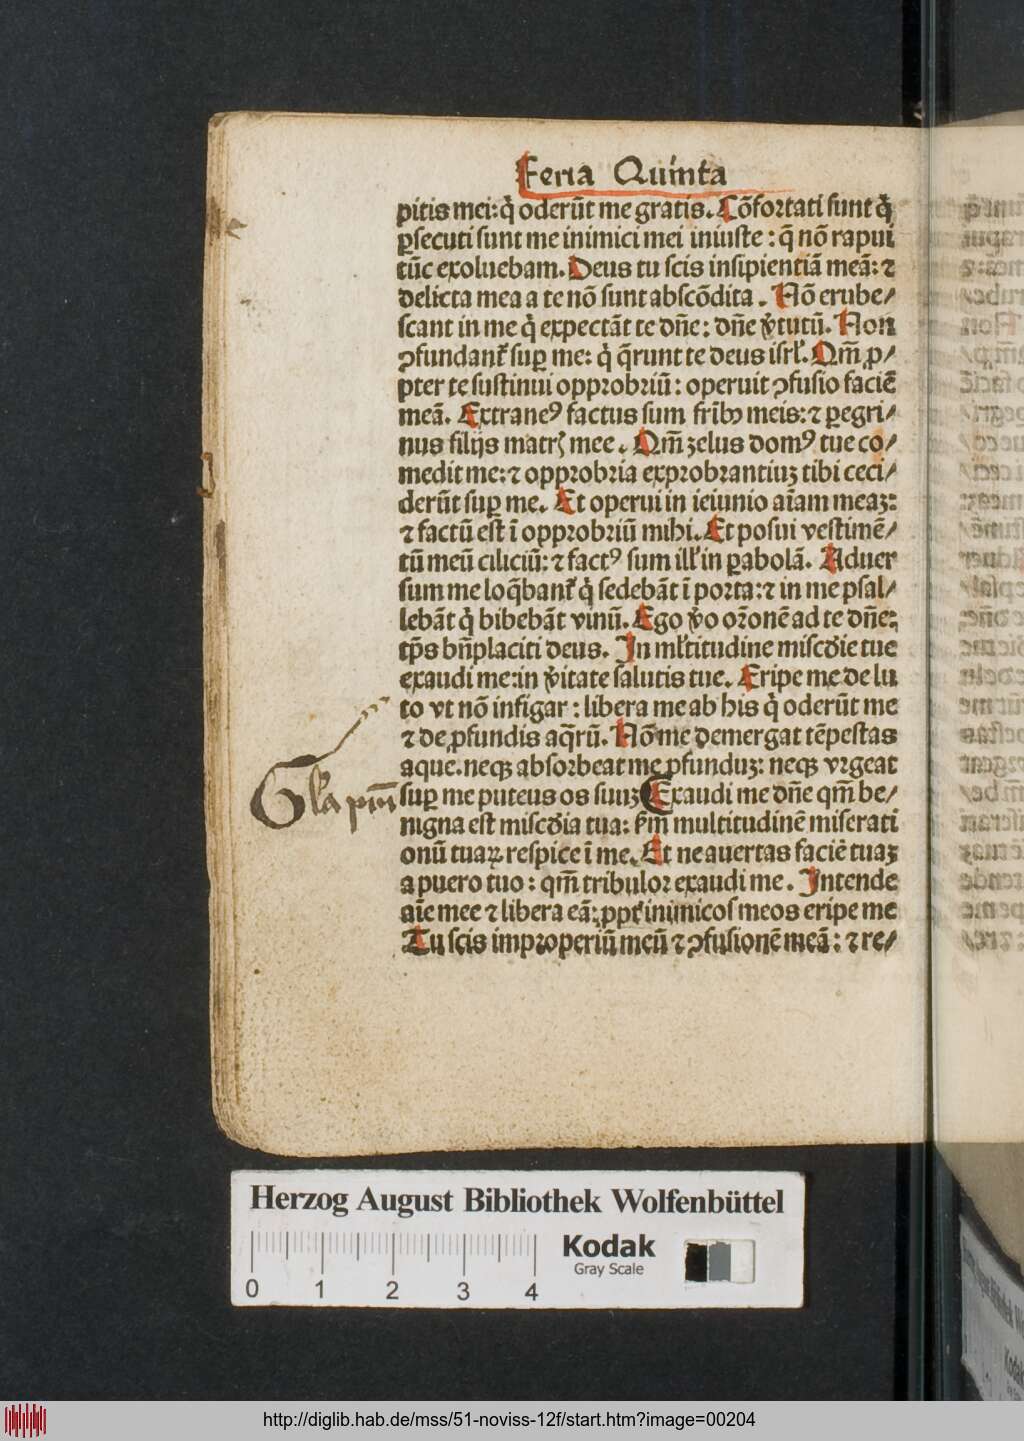 Feria Quinta
pitis mei: q̇ oderūt me gratis. Cōfortati sunt q̇
ꝑsecuti sunt me inimici mei iniuste: q̄ nō rapui
tūc exoluebam. Deus tu scis insipientiā meā: ⁊
delicta mea a te nō sunt abscōdita. Nō erube/
scant in me q̇ expectāt te dn̄e: dn̄e v̓tutū. Non
ꝯfundant᷑ suꝑ me: q̇ q̄runt te deus isrl̓. Qm̄ ꝓ/
pter te sustinui opprobriū: operuit ꝯfusio faciē
meā. Extraneꝰ factus sum frīb meis: ⁊ ꝑegri/
nus filijs matrꝭ mee. Qm̄ zelus domꝰ tue co/
medit me: ⁊ opprobria exprobrantiuꝫ tibi ceci/
derūt suꝑ me. Et operui in ieiunio aīam meaꝫ:
⁊ factū est ī opprobriū mihi. Et posui vestimē/
tū meū ciliciū: ⁊ factꝰ sum ill̓ in ꝑabolā. Aduer
sum me loq̄bant᷑ q̇ sedebāt ī porta: ⁊ in me psal/
lebāt q̇ bibebāt vinū. Ego v̓o or̄onē ad te dn̄e:
tp̄s bn̄placiti deus. In ml̓titudine misc̓die tue
exaudi me: in v̓itate salutis tue. Eripe me de lu
to vt nō infigar: libera me ab his q̇ oderūt me
⁊ de ꝓfundis aq̄rū. Nō me demergat tēpestas
aque. neqꝫ absorbeat me ꝓfunduꝫ: neqꝫ vrgeat
Gl̓a pr̄i
suꝑ me puteus os suuꝫ Exaudi me dn̄e qm̄ be/
nigna est misc̓dia tua: km̄ multitudinē miserati
onū tuaꝝ respice ī me. Et ne auertas faciē tuaꝫ
a puero tuo: qm̄ tribulor exaudi me. Intende
aīe mee ⁊ libera eā: ꝓpt᷑ inimicos meos eripe me
Tu scis improperiū meū ⁊ ꝯfusionē meā: ⁊ re/
Herzog August Bibliothek Wolfenbüttel
Kodak
Gray Scale
0 1 2 3 4
http://diglib.hab.de/mss/51-noviss-12f/start.htm?image=00204